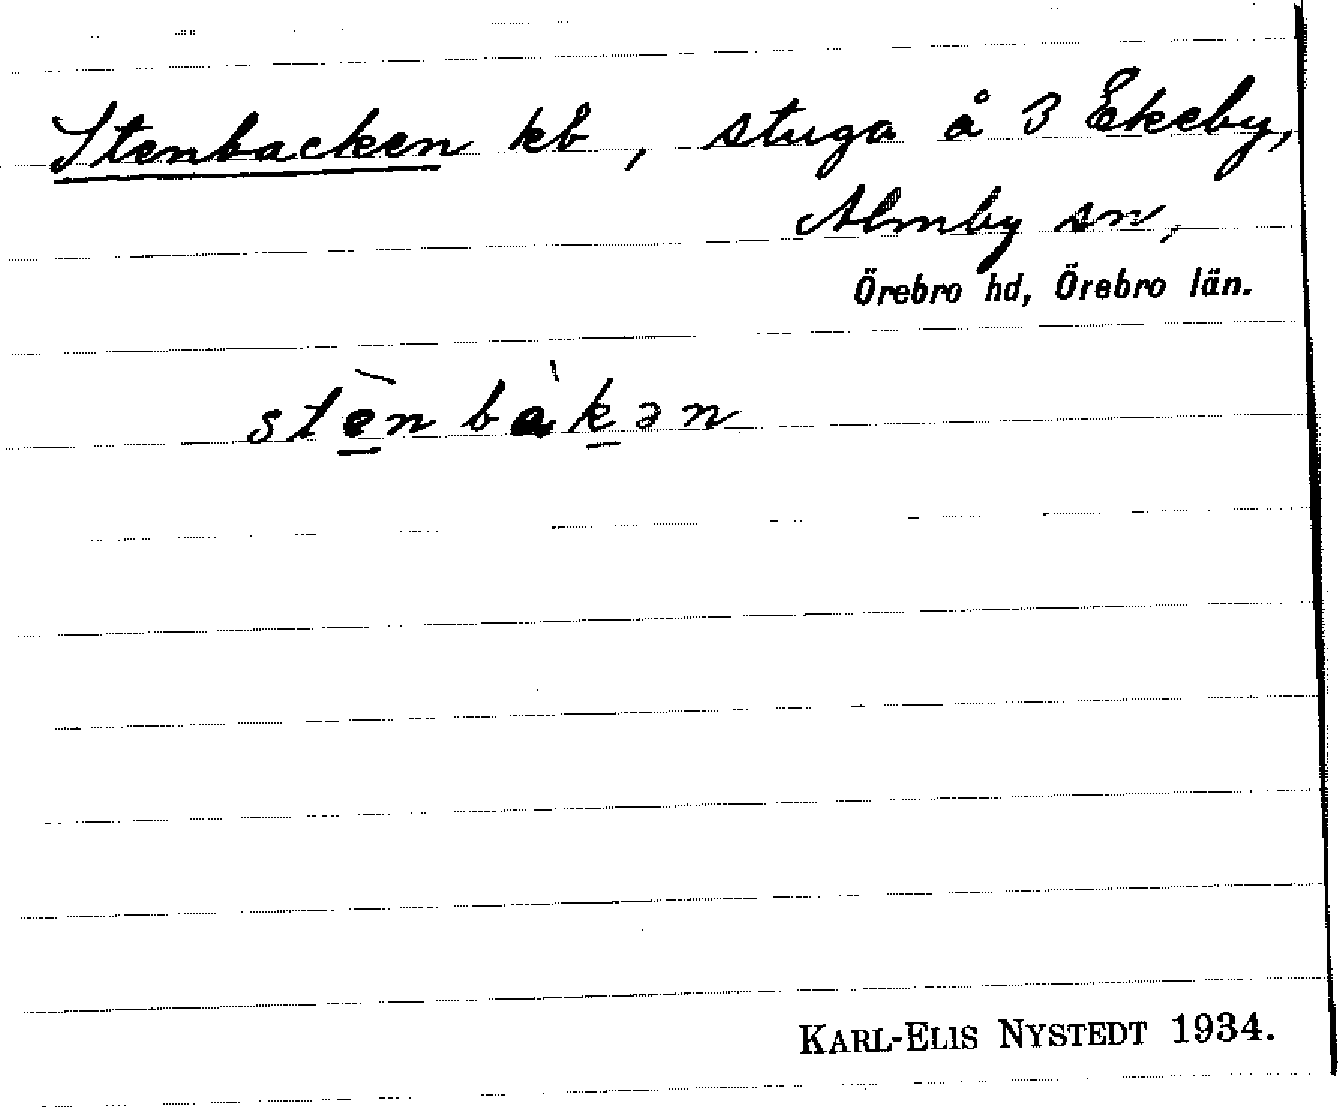 Stenbacken kb, stuga å 3 Ekeby,
Almby sn,
Örebro hd, Örebro län.
stè̲nbàk̲ən
KARL-ELIS NYSTEDT 1934.